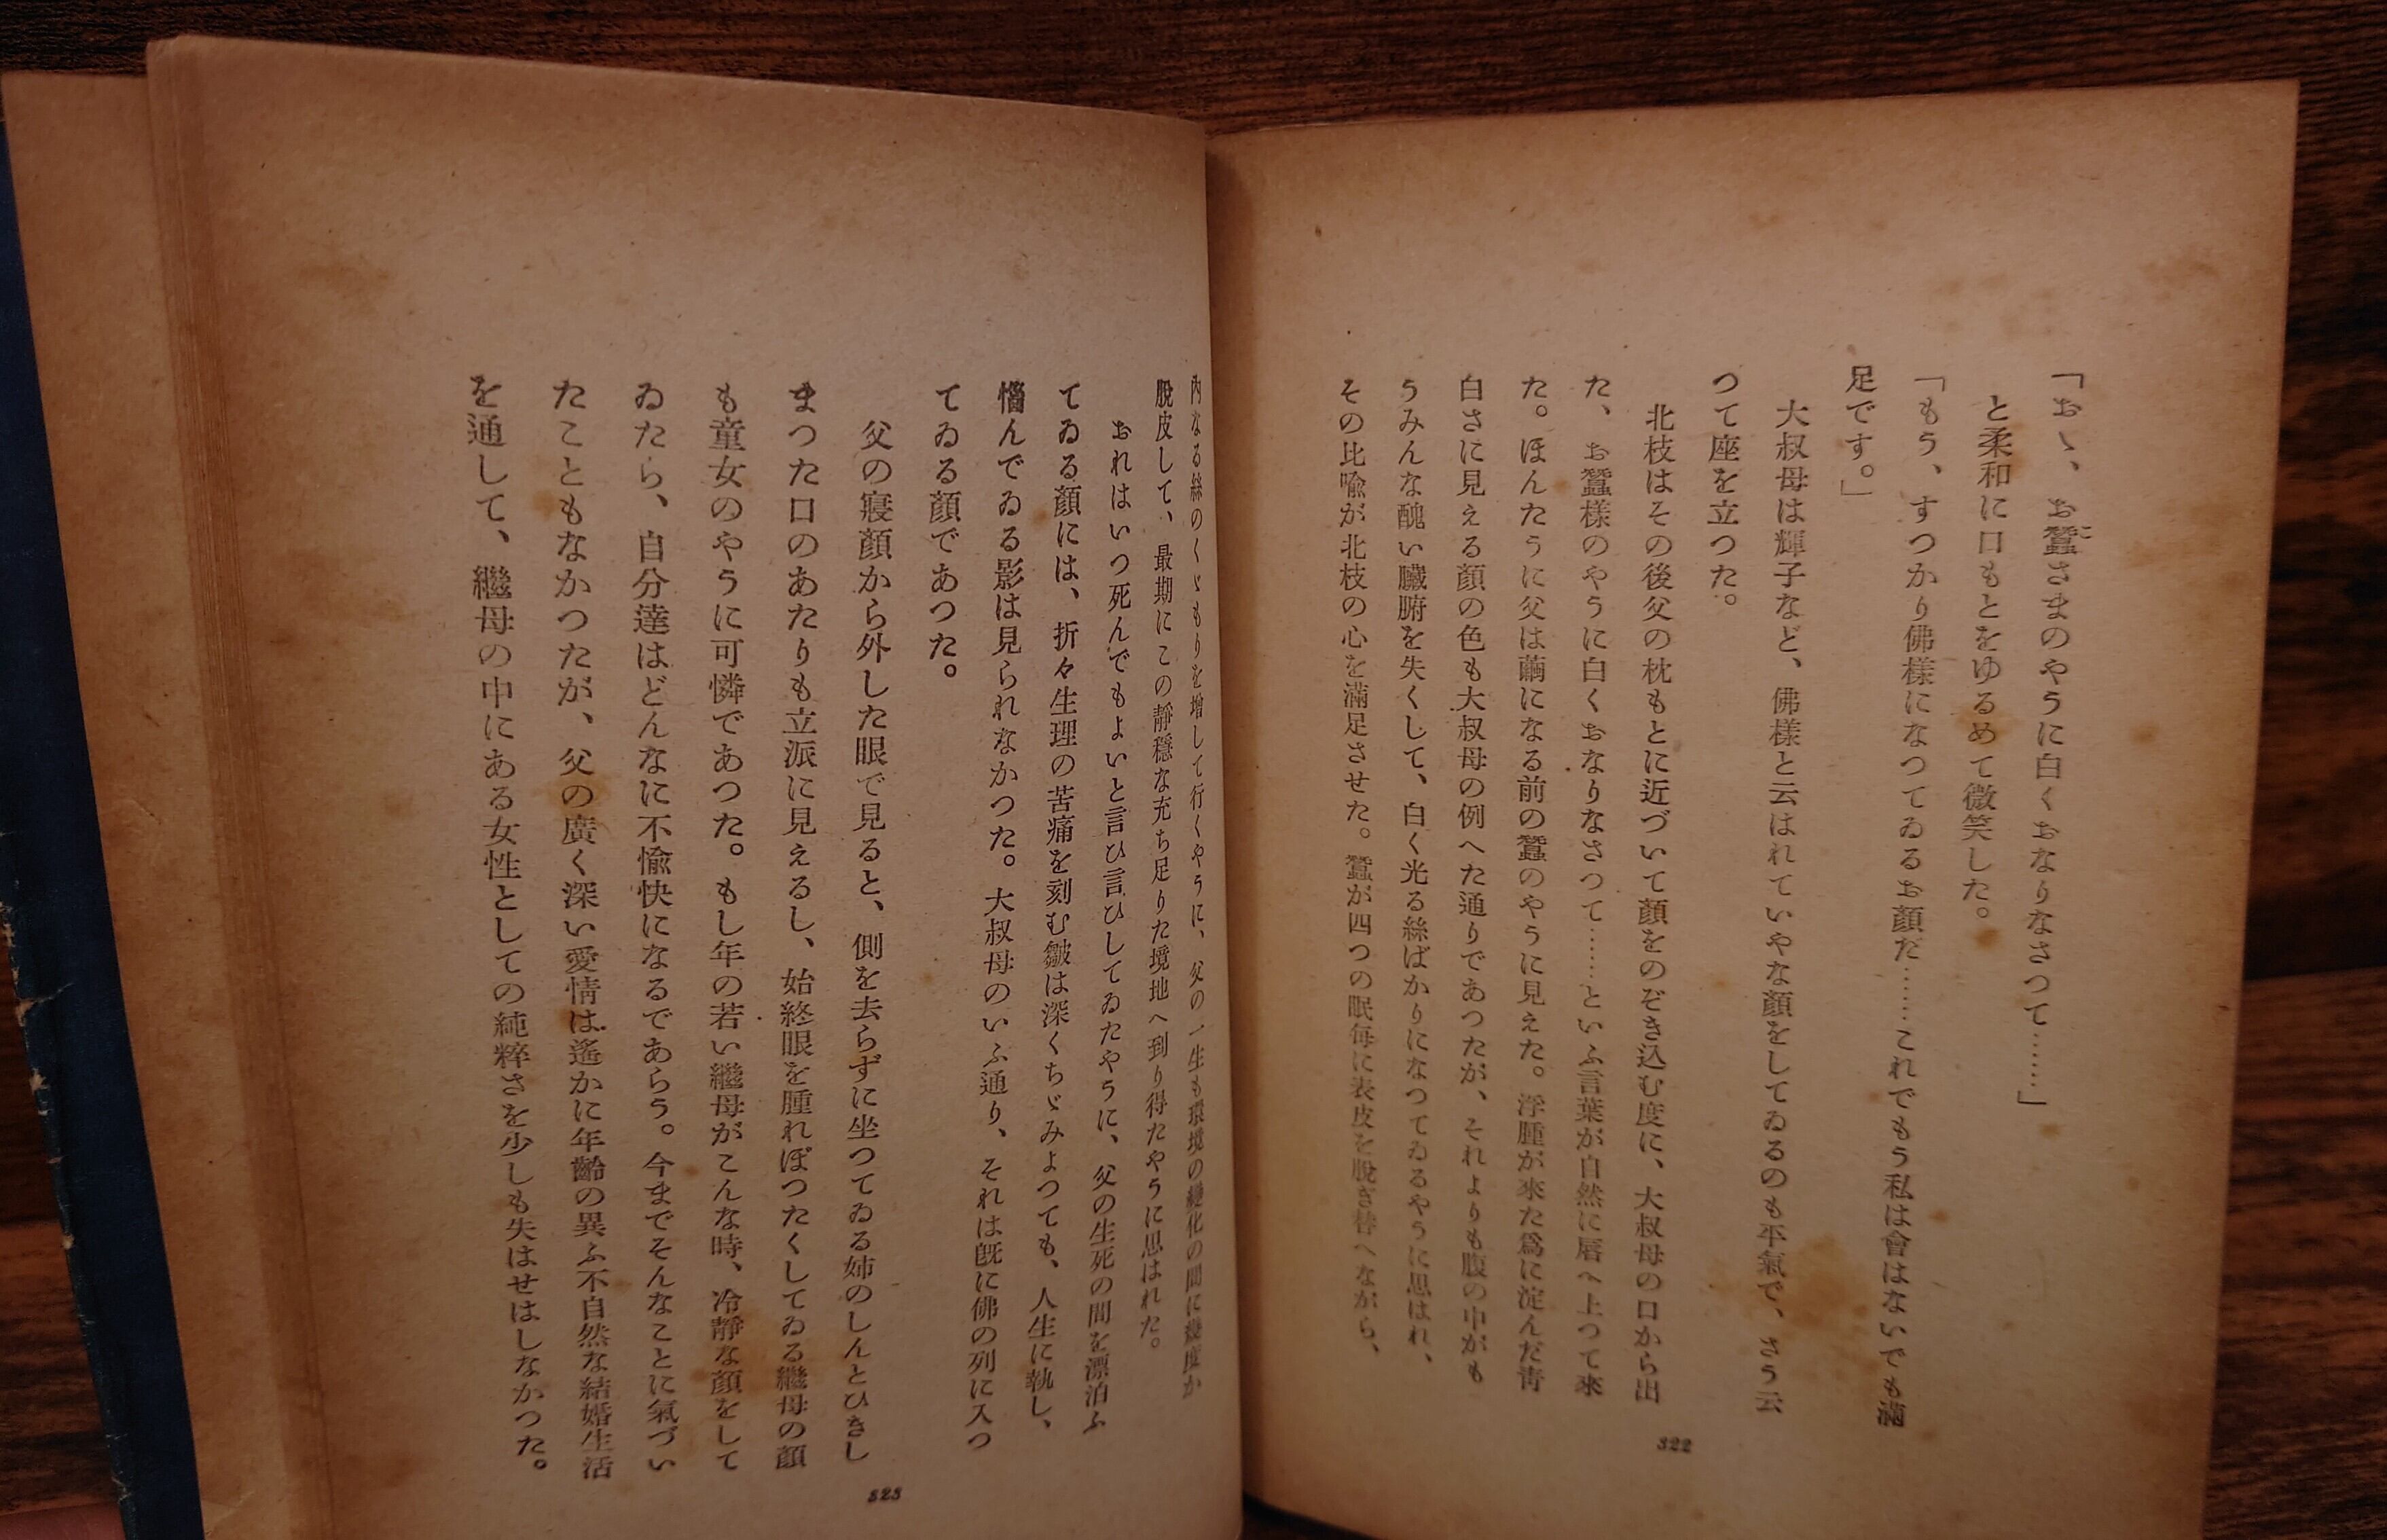 「おゝ、お蠶さまのやうに白くおなりなさつて……」
と柔和に口もとをゆるめて微笑した。
「もう、すつかり佛樣になつてゐるお顏だ……これでもう私は會はないでも滿
足です。」
大叔母は輝子など、佛樣と云はれていやな顏をしてゐるのも平氣で、さう云
つて座を立つた。
北枝はその後父の枕もとに近づいて顏をのぞき込む度に、大叔母の口から出
た、お蠶樣のやうに白くおなりなさつて……といふ言葉が自然に唇へ上つて來
た。ほんたうに父は繭になる前の蠶のやうに見えた。浮腫が來た爲に淀んだ靑
白さに見える顏の色も大叔母の例へた通りであつたが、それよりも腹の中がも
うみんな醜い臟腑を失くして、白く光る絲ばかりになつてゐるやうに思はれ、
その比喩が北枝の心を滿足させた。蠶が四つの眠每に表皮を脫ぎ替へながら、
322
內なる絲のくゞもりを增して行くやうに、父の一生も環境の變化の間に幾度か
脫皮して、最期にこの靜穩な充ち足りた境地へ到り得たやうに思はれた。
おれはいつ死んでもよいと言ひ言ひしてゐたやうに、父の生死の間を漂泊ふ
てゐる顏には、折々生理の苦痛を刻む皺は深くちゞみよつても、人生に執し、
惱んでゐる影は見られなかつた。大叔母のいふ通り、それは旣に佛の列に入つ
てゐる顏であつた。
父の寢顏から外した眼で見ると、側を去らずに坐つてゐる姉のしんとひきし
まつた口のあたりも立派に見えるし、始終眼を腫れぽつたくしてゐる繼母の顏
も童女のやうに可憐であつた。もし年の若い繼母がこんな時、冷靜な顏をして
ゐたら、自分達はどんなに不愉快になるであらう。今までそんなことに氣づい
たこともなかつたが、父の廣く深い愛情は遙かに年齡の異ふ不自然な結婚生活
を通して、繼母の中にある女性としての純粹さを少しも失はせはしなかつた。
323